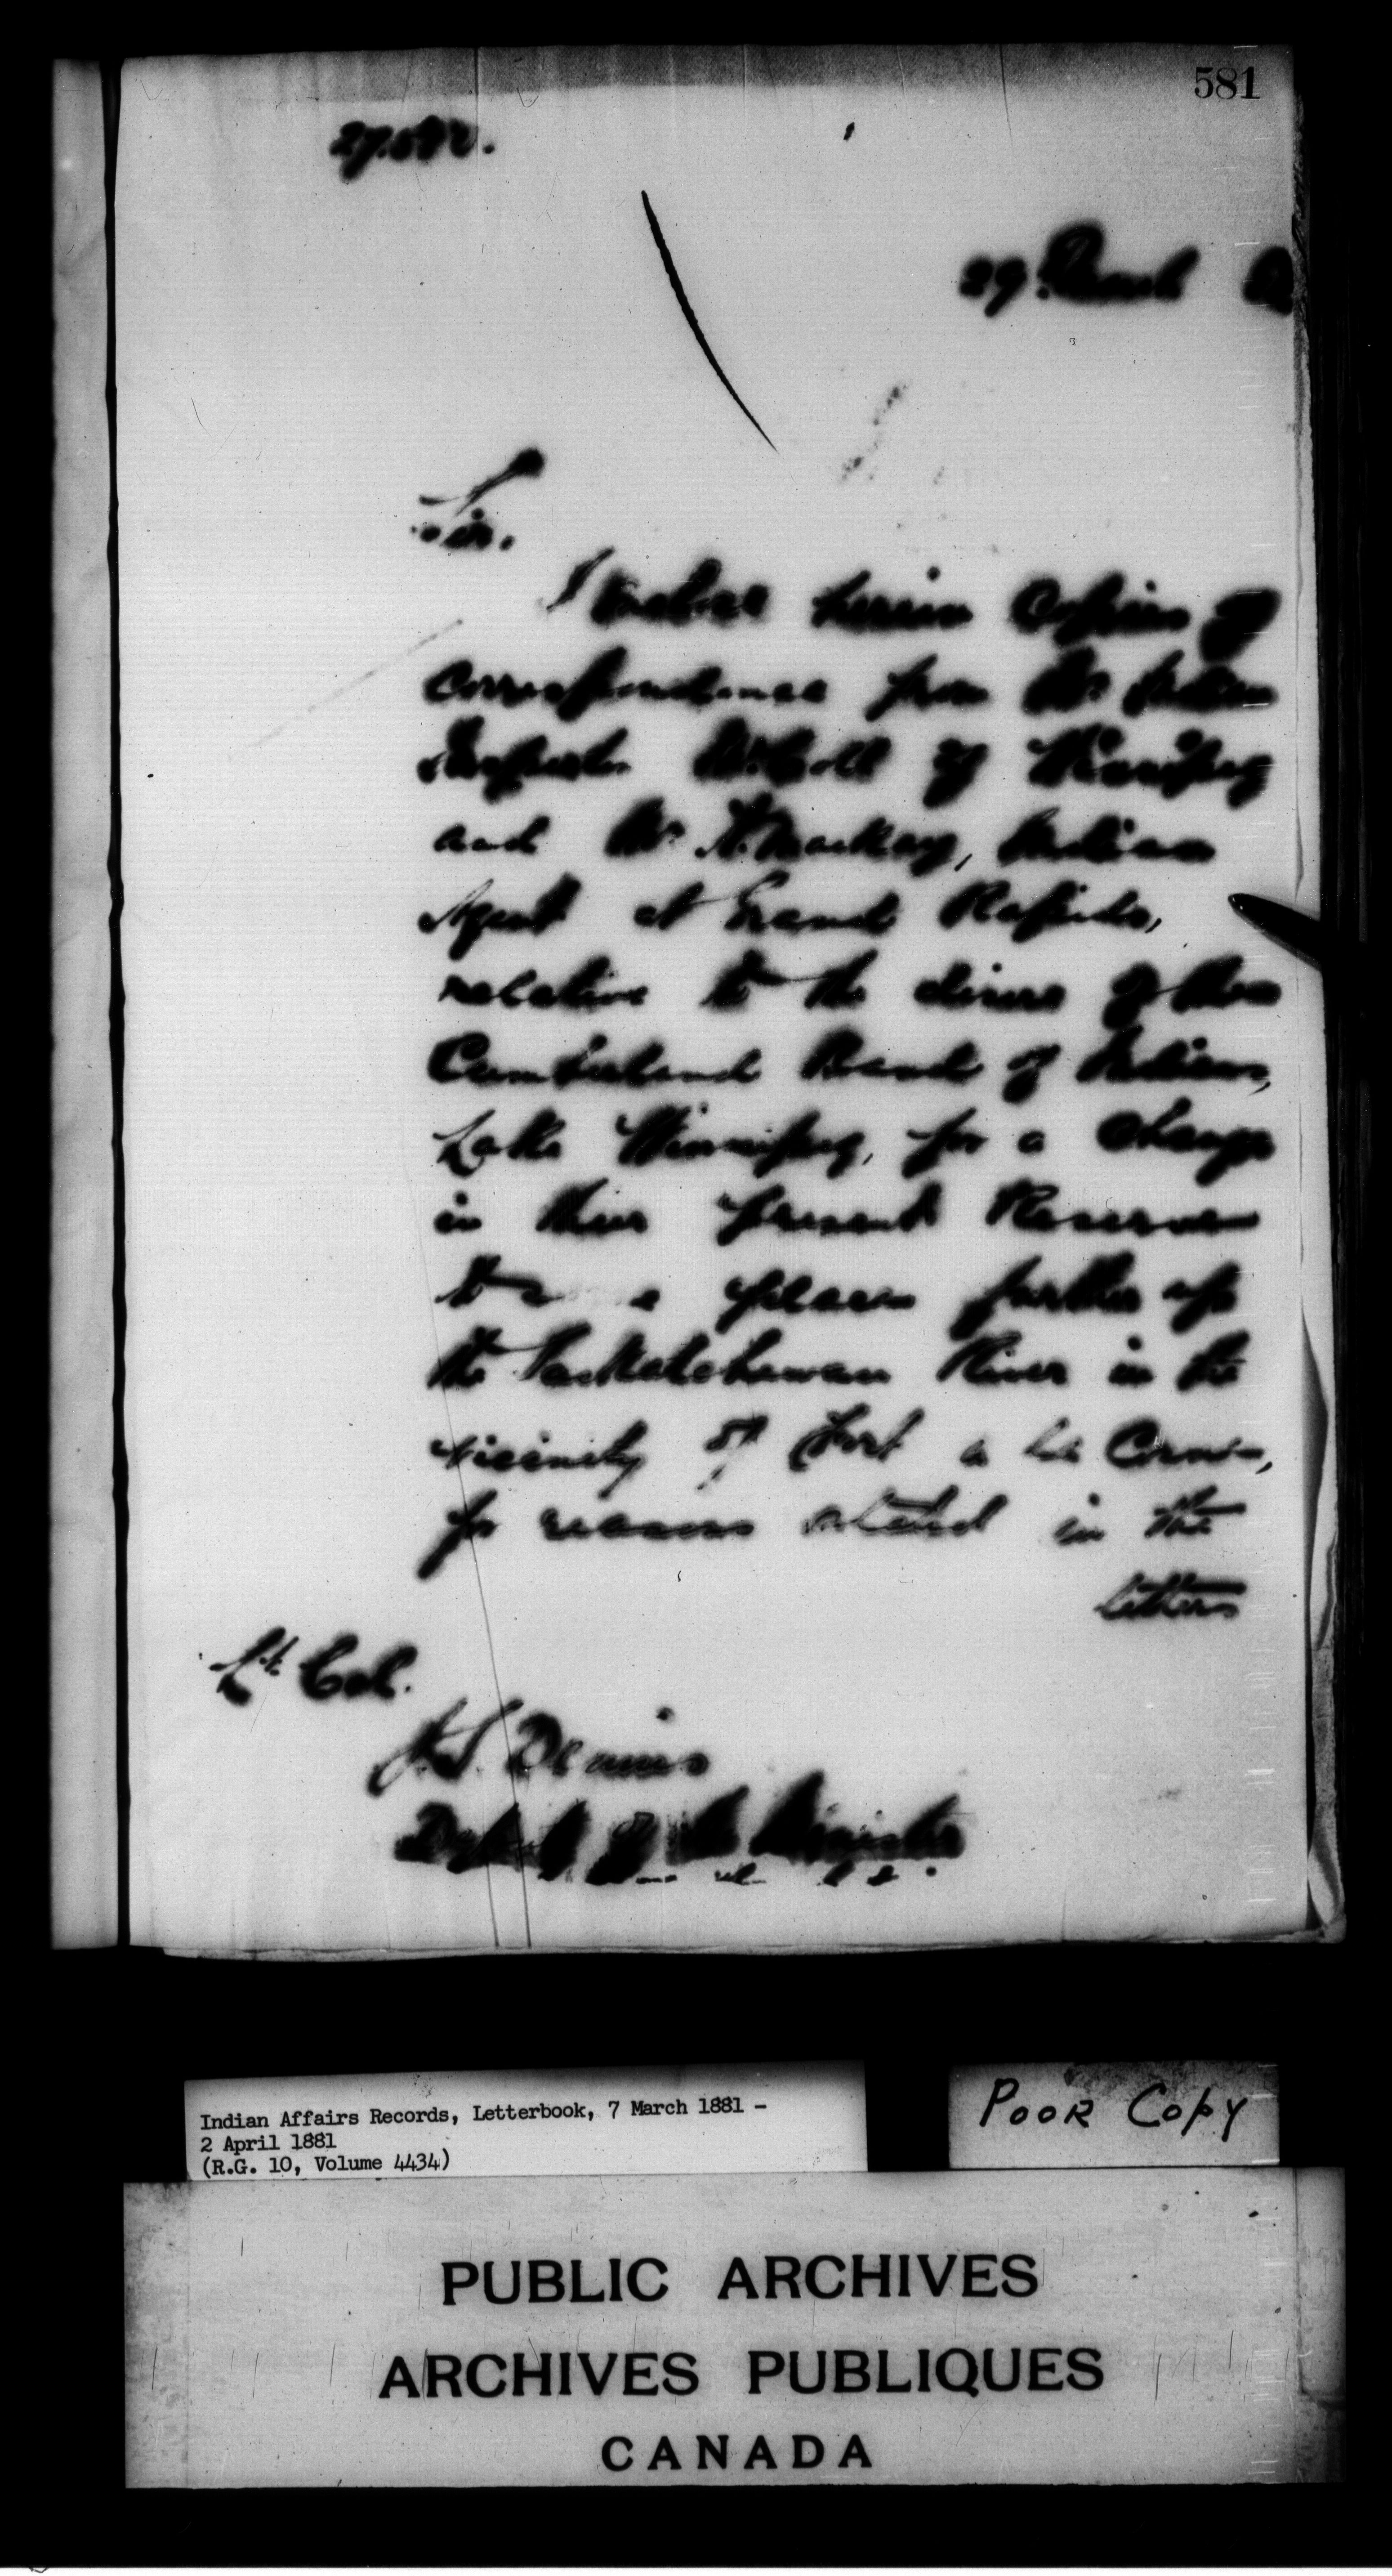 581
29 March
Sir,
I enclose herein Copies of
correspondence from Mr Indian
Inspector McColl of Winnipeg
and Mr A. Mackay, Indian
Agent at Grand Rapids,
relative to the desire of the
Cumberland Band of Indians,
Lake Winnipeg, for a change
in their present Reserve
to a place further up
the Saskatchewan River in the
vicinity of Fort a la Corne,
for reasons stated in the
letters
Lt. Col.
J.S. Dennis
Deputy of the Minister
Indian Affairs Records, Letterbook, 7 March 1881 -
2 April 1881
(R.G. 10, Volume 4434)
POOR COPY
PUBLIC ARCHIVES
ARCHIVES PUBLIQUES
CANADA